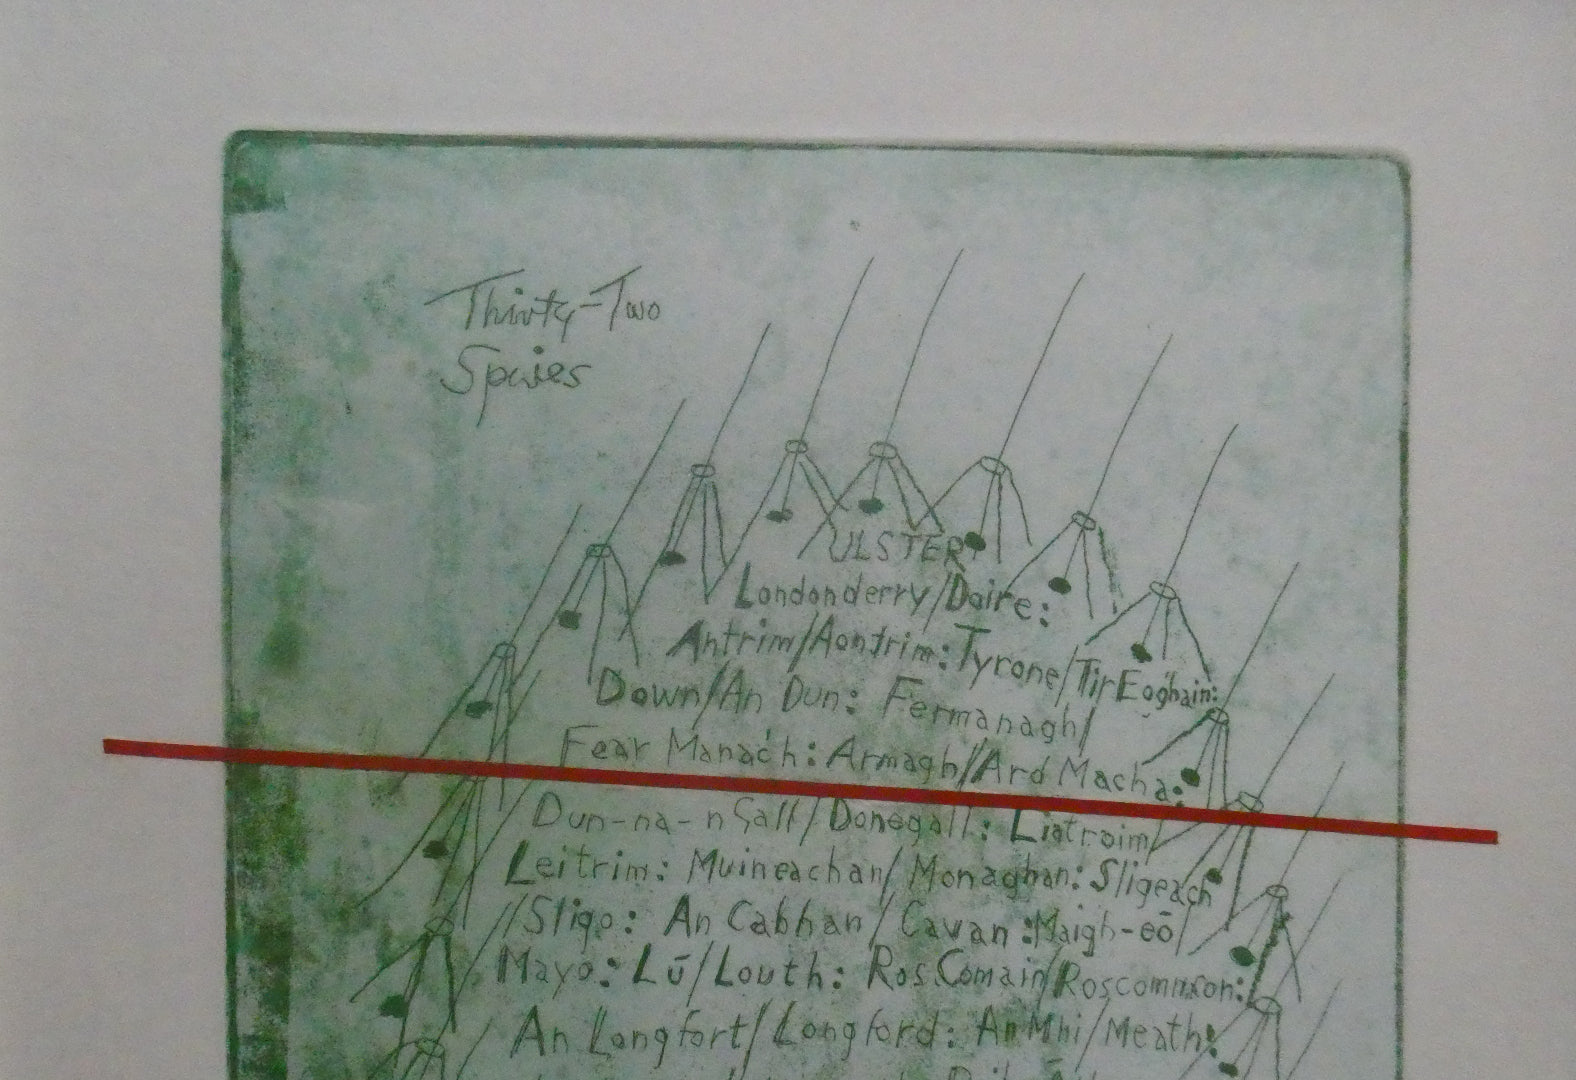 Thirty-Two
Spaies
ULSTER
Londonderry/Doire:
Antrim/Aontrim: Tyrone/Tir Eoghain:
Down/An Dun: Fermanagh/
Fear Manach: Armagh/Ard Macha:
Dun-na-nGall/Donegall: Liatroim/
Leitrim: Muineachan/Monaghan: Sligeach
/Sligo: An Cabhan/Cavan: Maigh-eō/
Mayo: Lū/Louth: Ros Comain/Roscommon:
An Longfort/Longford: An Mhi/Meath: